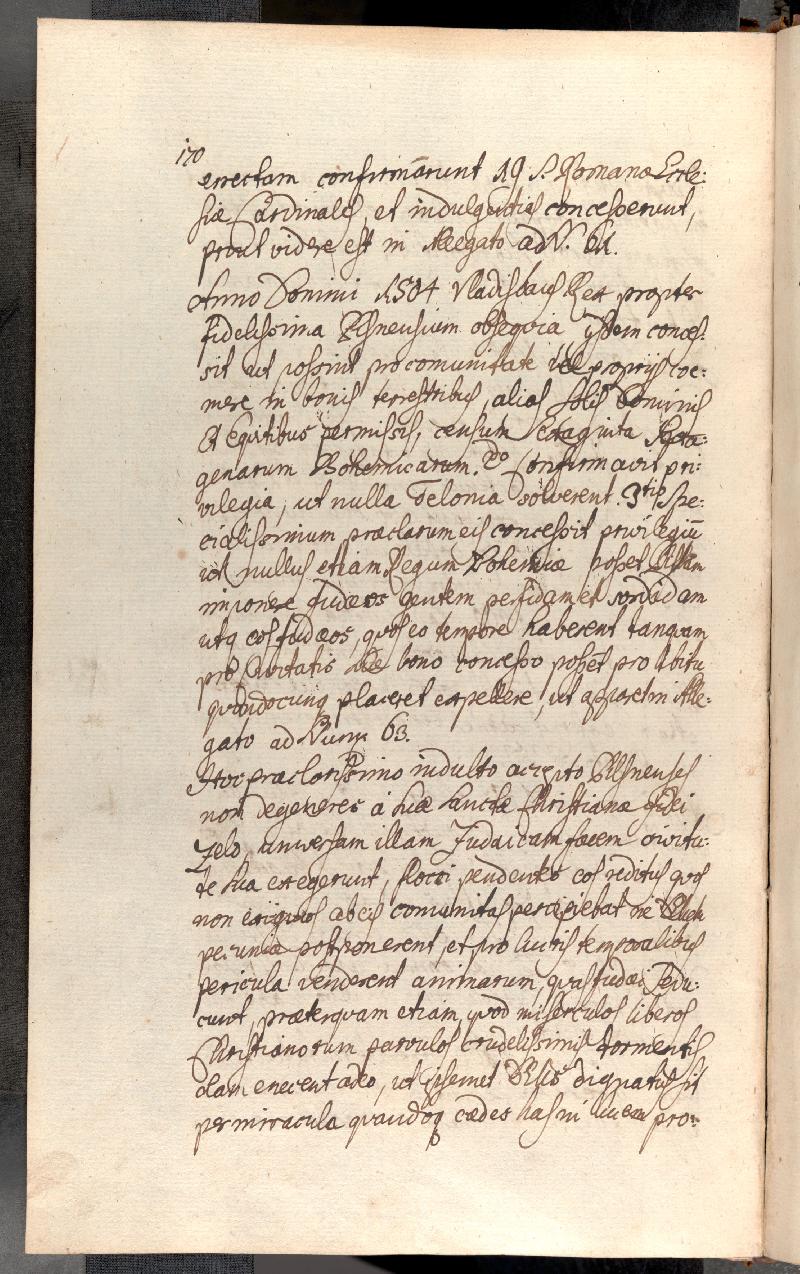 170
errectam confirmārunt 19 S. Romanæ Eccle:
siæ Cardinales, et indulgentias concesserunt,
prout videre est in Allegato ad N. 61.
Anno Domini 1504 Vladislaus Rex propter
fidelissima Pilsnensium obsequia ijsdem conces:
sit ut possint pro comunitate vel proprijs coe:
mere in bonis terrestribus, alias solis Dominis
et Equitibus permissis, censum
genarum Bohemicarum. 2do Confirmavit pri:
vilegia, ut nulla Telonia solverent. 3tio Spe:
cialissimum præclarum eis concessit privilegiũ
ut nullus etiam Regum Bohemiæ posset
imponere Judæos gentem perfidam et sordidam
utq eos Judæos, quos eo tempore haberent tanquam
pro Civitatis suæ bono concesso posset pro libitu
quandocunq placeret expellere, ut apparet in Alle:
gato ad Num 63.
Hoc præclarissimo indulto accepto Pilsnenses
non degeneres à suæ sanctæ Christianæ fidei
Zelo, universam illam Judaicam fæcem civita:
te sua exegerunt, flocci pendentes eos reditus quos
non exiguos ab eis comunitas percipiebat ne
pecuniæ postponerent, et pro lucris temporalibus
pericula venderent animarum, quas Judæi sedu:
cunt, præterquam etiam, quod miserculos liberos
Christianorum parvulos crudelissimis tormentis
clam enecent adeo, ut ipsemet DEus dignatus sit
per miracula quandoq cædes has in lucem pro: